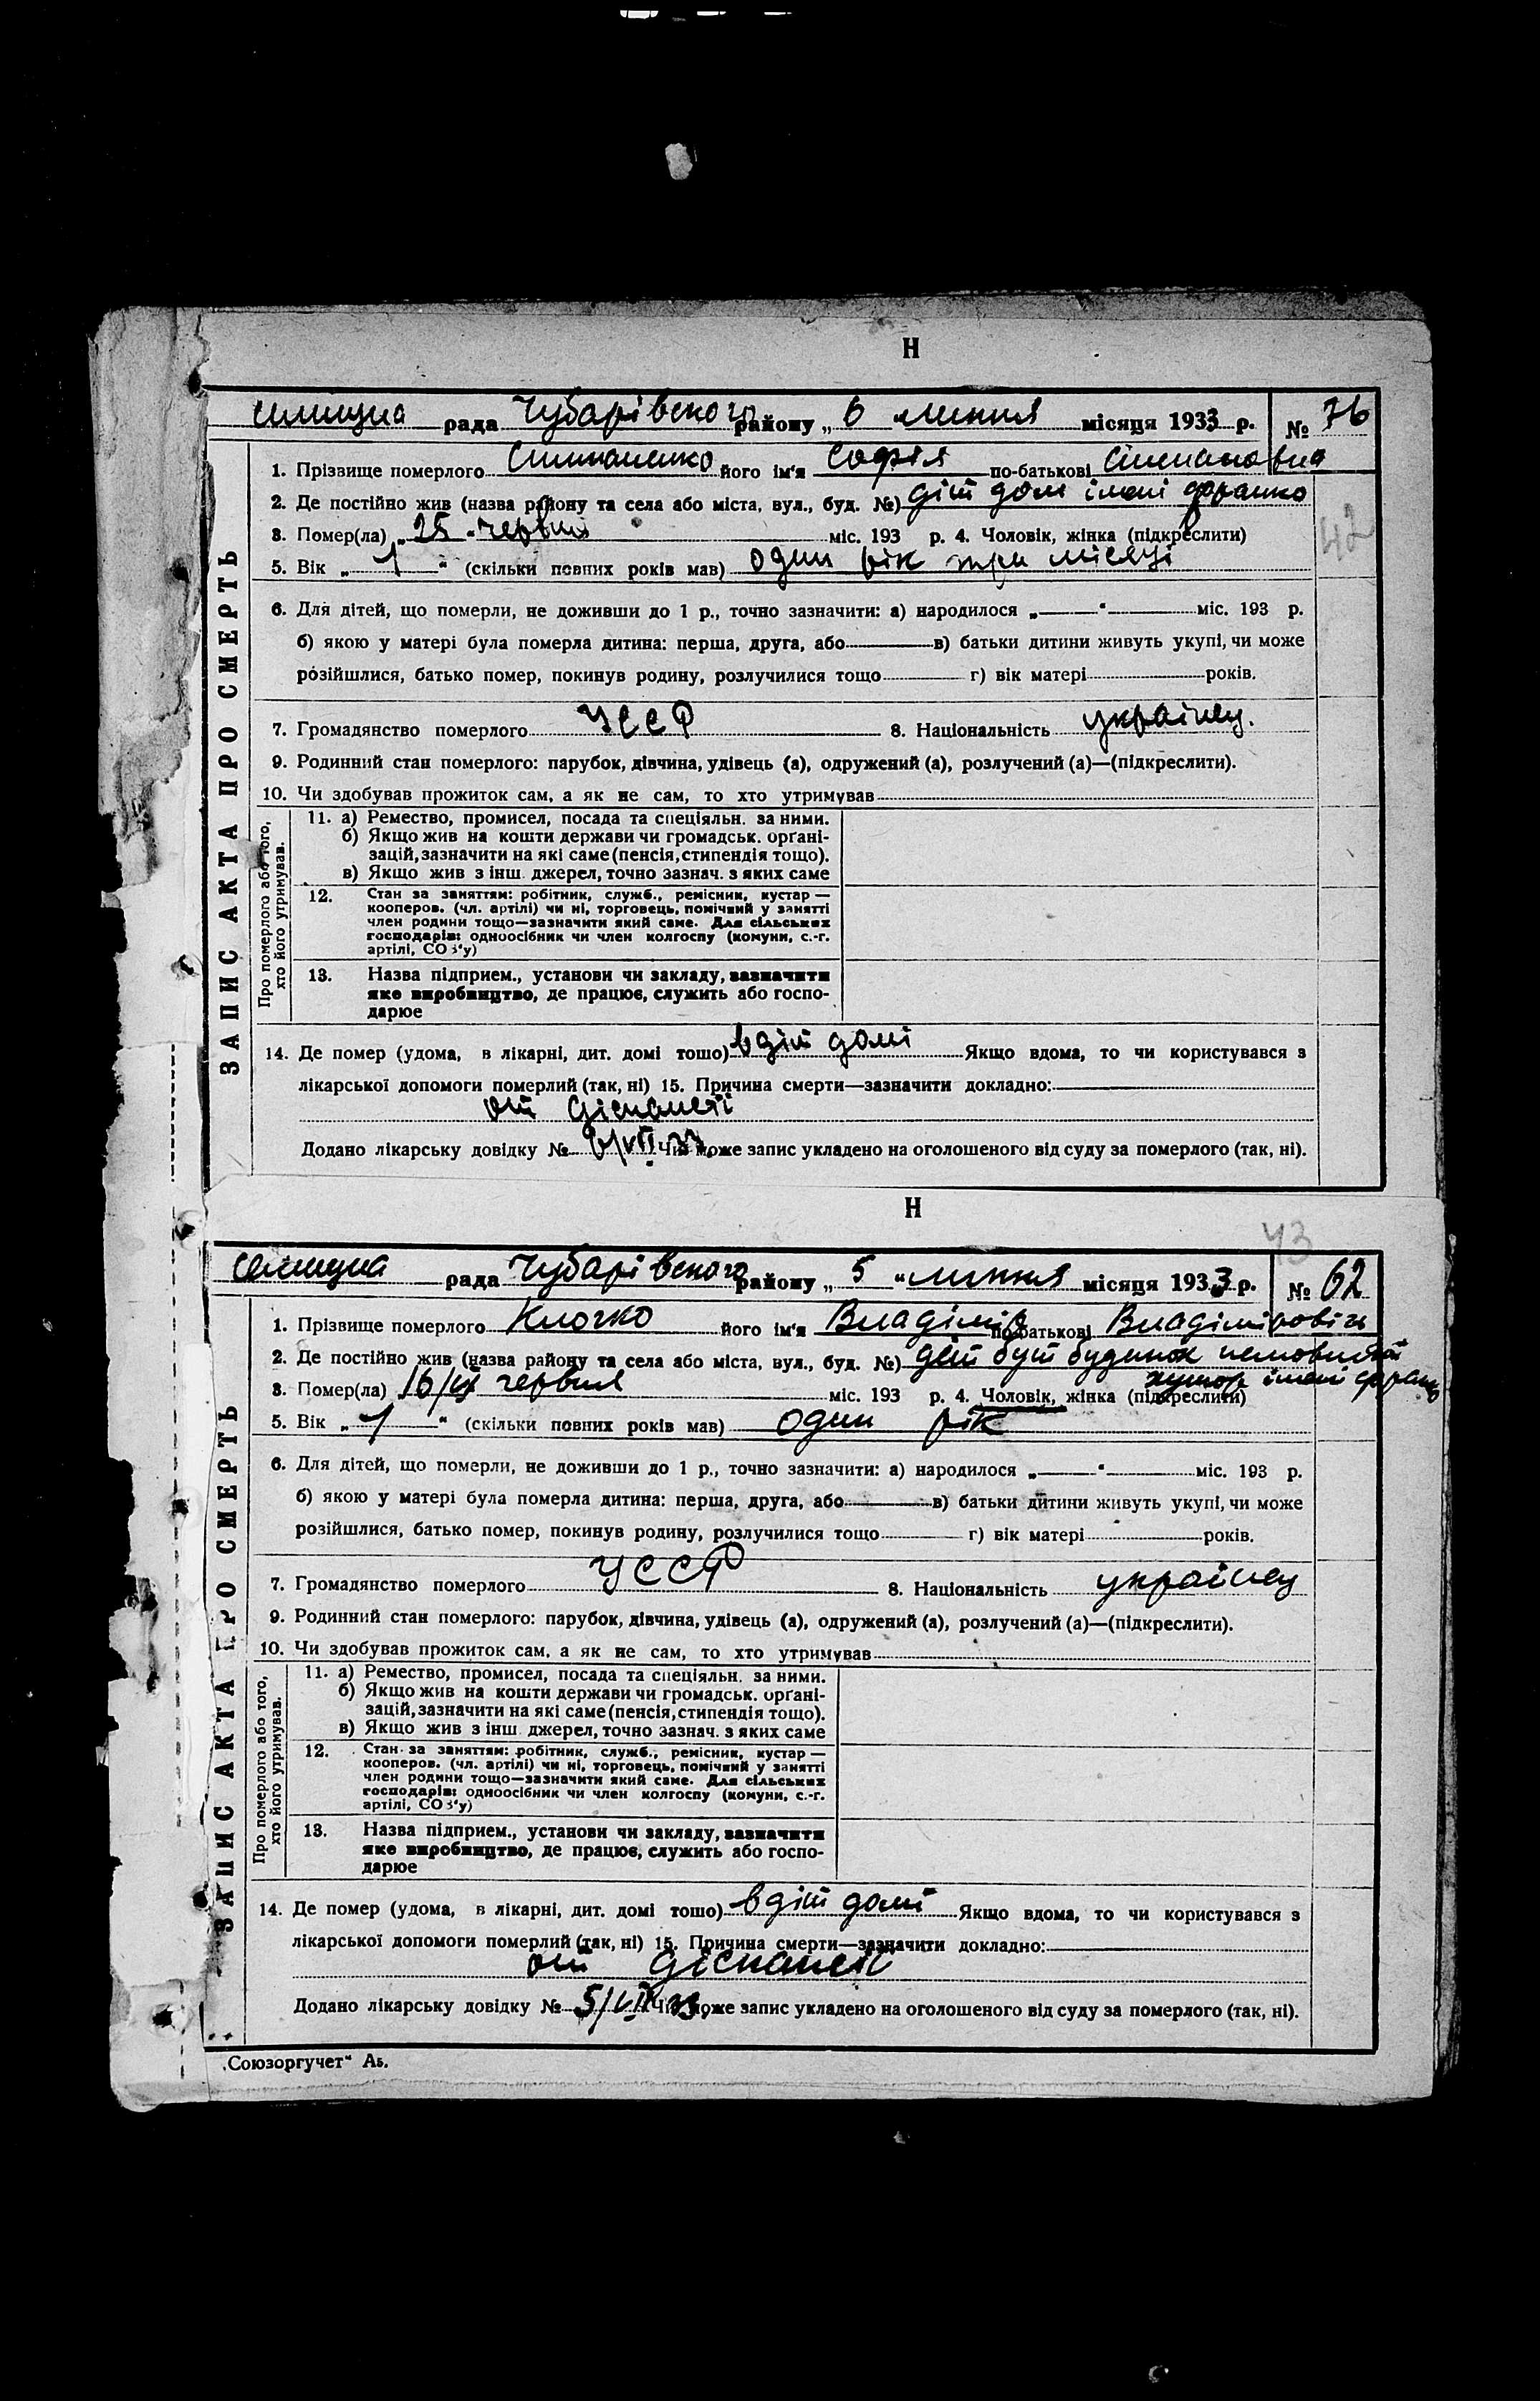 Н
селищна рада Чубарівського району „ 6 " липня місяця 1933 р. № 76
1. Прізвище померлого Степаненко його ім'я Софія по-батькові Степановна
2. Де постійно жив (назва району та села або міста, вул., буд. №) діт дом імені франко
3. Помер(ла) „ 25 " червня міс. 193 р. 4. Чоловік, жінка (підкреслити)
42
5. Вік „ 1 " (скільки повних років мав) один рік три місяці
6. Для дітей, що померли, не доживши до 1 р., точно зазначити: а) народилося „ " міс. 193 р.
б) якою у матері була померла дитина: перша, друга, або в) батьки дитини живуть укупі, чи може
розійшлися, батько помер, покинув родину, розлучилися тощо г) вік матері років.
7. Громадянство померлого УССР 8. Національність українец.
9. Родинний стан померлого: парубок, дівчина, удівець (а), одружений (а), розлучений (а)—(підкреслити).
10. Чи здобував прожиток сам, а як не сам, то хто утримував
ЗАПИС АКТА ПРО СМЕРТЬ
Про померлого або того, хто його утримував.
11. а) Ремество, промисел, посада та спеціяльн. за ними.
б) Якщо жив на кошти держави чи громадськ. органі-
зацій, зазначити на які саме (пенсія, стипендія тощо).
в) Якщо жив з інш. джерел, точно зазнач. з яких саме
12. Стан за заняттям: робітник, служб., ремісник, кустар —
кооперов. (чл. артілі) чи ні, торговець, помічний у занятті
член родини тощо—зазначити який саме. Для сільських
господарів: одноосібник чи член колгоспу (комуни, с.-г.
артілі, СОЗ'у)
13. Назва підприєм., установи чи закладу, зазначити
яке виробництво, де працює, служить або госпо-
дарює
14. Де помер (удома, в лікарні, дит. домі тощо) в діт домі Якщо вдома, то чи користувався з
лікарської допомоги померлий (так, ні) 15. Причина смерти—зазначити докладно:
от діспапсії
Додано лікарську довідку № 6/VII 33. Чи може запис укладено на оголошеного від суду за померлого (так, ні).
Н
43
селищна рада Чубарівського району „ 5 " липня місяця 1933 р. № 62
1. Прізвище померлого Клочко його ім'я Владімір по-батькові Владіміровіч
2. Де постійно жив (назва району та села або міста, вул., буд. №) діт будинок немовлят
хутор імені франко
3. Помер(ла) 16/VI червня міс. 193 р. 4. Чоловік, жінка (підкреслити)
5. Вік „ 1 " (скільки повних років мав) один рік
6. Для дітей, що померли, не доживши до 1 р., точно зазначити: а) народилося „ " міс. 193 р.
б) якою у матері була померла дитина: перша, друга, або в) батьки дитини живуть укупі, чи може
розійшлися, батько помер, покинув родину, розлучилися тощо г) вік матері років.
7. Громадянство померлого УССР 8. Національність українец
9. Родинний стан померлого: парубок, дівчина, удівець (а), одружений (а), розлучений (а)—(підкреслити).
10. Чи здобував прожиток сам, а як не сам, то хто утримував
ЗАПИС АКТА ПРО СМЕРТЬ
Про померлого або того, хто його утримував.
11. а) Ремество, промисел, посада та спеціяльн. за ними.
б) Якщо жив на кошти держави чи громадськ. органі-
зацій, зазначити на які саме (пенсія, стипендія тощо).
в) Якщо жив з інш. джерел, точно зазнач. з яких саме
12. Стан за заняттям: робітник, служб., ремісник, кустар —
кооперов. (чл. артілі) чи ні, торговець, помічний у занятті
член родини тощо—зазначити який саме. Для сільських
господарів: одноосібник чи член колгоспу (комуни, с.-г.
артілі, СОЗ'у)
13. Назва підприєм., установи чи закладу, зазначити
яке виробництво, де працює, служить або госпо-
дарює
14. Де помер (удома, в лікарні, дит. домі тощо) в діт домі Якщо вдома, то чи користувався з
лікарської допомоги померлий (так, ні) 15. Причина смерти—зазначити докладно:
от діспапсії
Додано лікарську довідку № 5/VII 33. Чи може запис укладено на оголошеного від суду за померлого (так, ні).
„Союзоргучет" Аь.